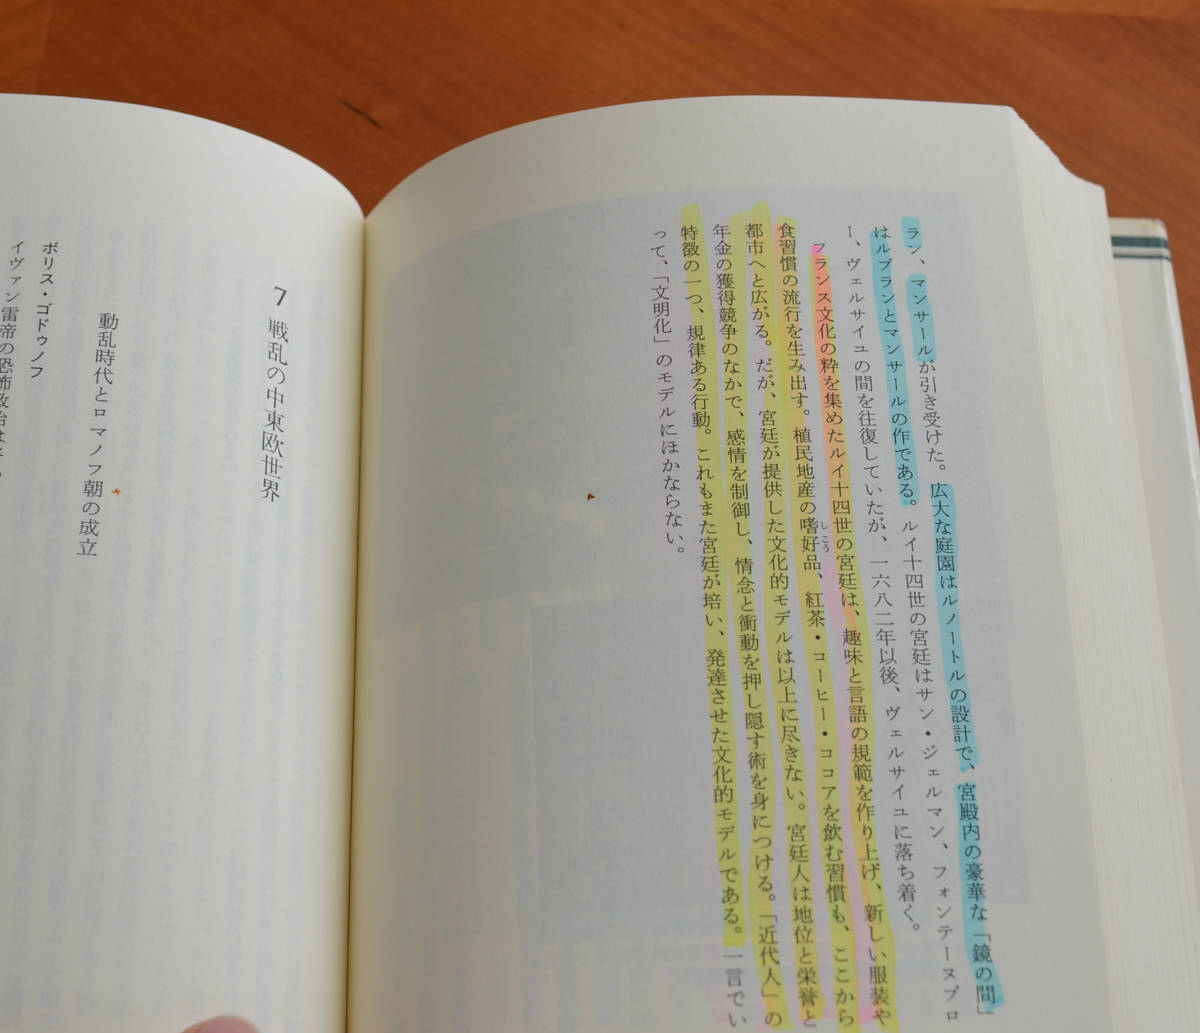 ラン、マンサールが引き受けた。広大な庭園はルノートルの設計で、宮殿内の豪華な「鏡の間」
はルブランとマンサールの作である。ルイ十四世の宮廷はサン・ジェルマン、フォンテーヌブロ
ー、ヴェルサイユの間を往復していたが、一六八二年以後、ヴェルサイユに落ち着く。
フランス文化の粋を集めたルイ十四世の宮廷は、趣味と言語の規範を作り上げ、新しい服装や
食習慣の流行を生み出す。植民地産の嗜好品、紅茶・コーヒー・ココアを飲む習慣も、ここから
しこう
都市へと広がる。だが、宮廷が提供した文化的モデルは以上に尽きない。宮廷人は地位と栄誉と
年金の獲得競争のなかで、感情を制御し、情念と衝動を押し隠す術を身につける。「近代人」の
特徴の一つ、規律ある行動。これもまた宮廷が培い、発達させた文化的モデルである。一言でい
って、「文明化」のモデルにほかならない。
7 戦乱の中東欧世界
動乱時代とロマノフ朝の成立
ボリス・ゴドゥノフ
イヴァン雷帝の恐怖政治は